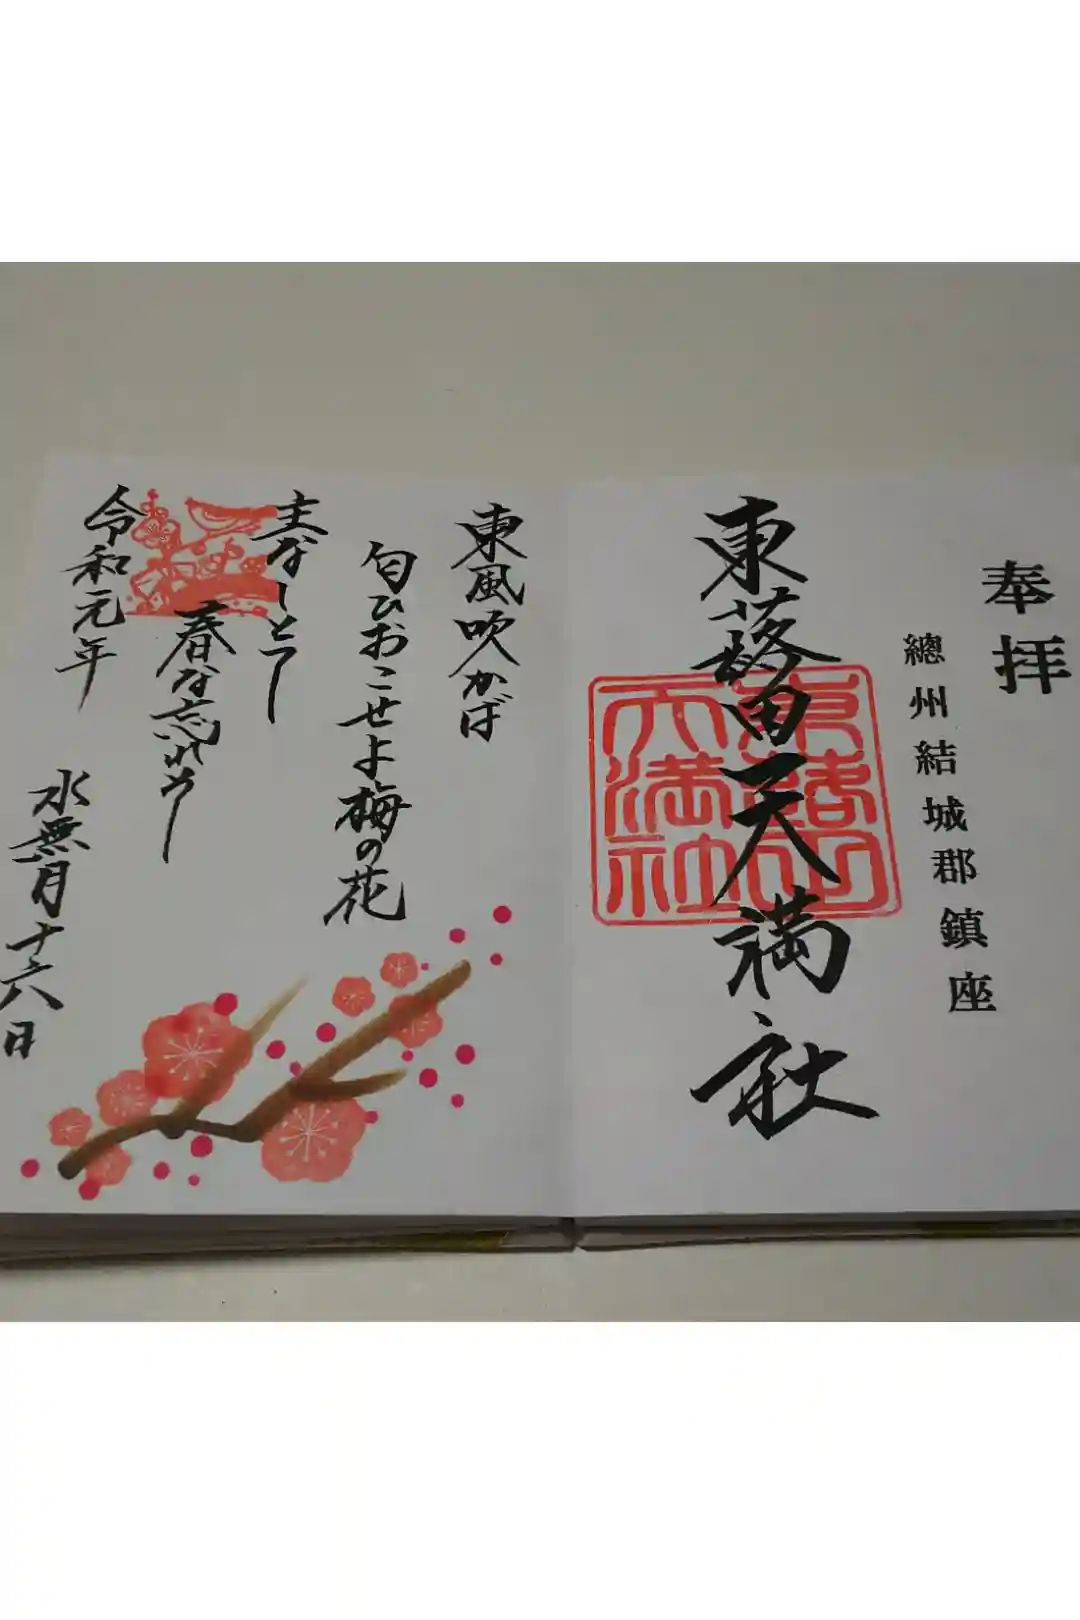 奉拝
總州結城郡鎮座
東蕗田天満社
東蕗田
天満社
東風吹かば
匂ひおこせよ梅の花
主なしとて
春な忘れそ
令和元年
水無月十六日